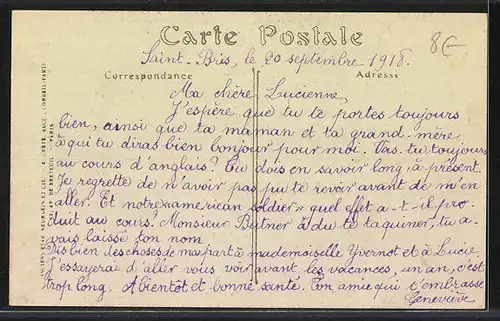 8€
Carte Postale
Saint-Bris, le 20 septembre 1918.
Correspondance
Adresse
Ma chère Lucienne,
J'espère que tu te portes toujours
bien, ainsi que ta maman et ta grand-mère
à qui tu diras bien bonjour pour moi. Vas-tu toujours
au cours d'anglais? Tu dois en savoir long à présent.
Je regrette de n'avoir pas pu te revoir avant de m'en
aller. Et notre american soldier « quel effet a-t-il pro-
duit au cours? Monsieur Beitner a dû te taquiner, tu a-
vais laissé ton nom
Dis bien des choses de ma part à mademoiselle Yvernot et à Lucie.
J'essayerai d'aller vous voir avant les vacances, un an, c'est
trop long. A bientôt et bonne santé. Ton amie qui t'embrasse
Geneviève